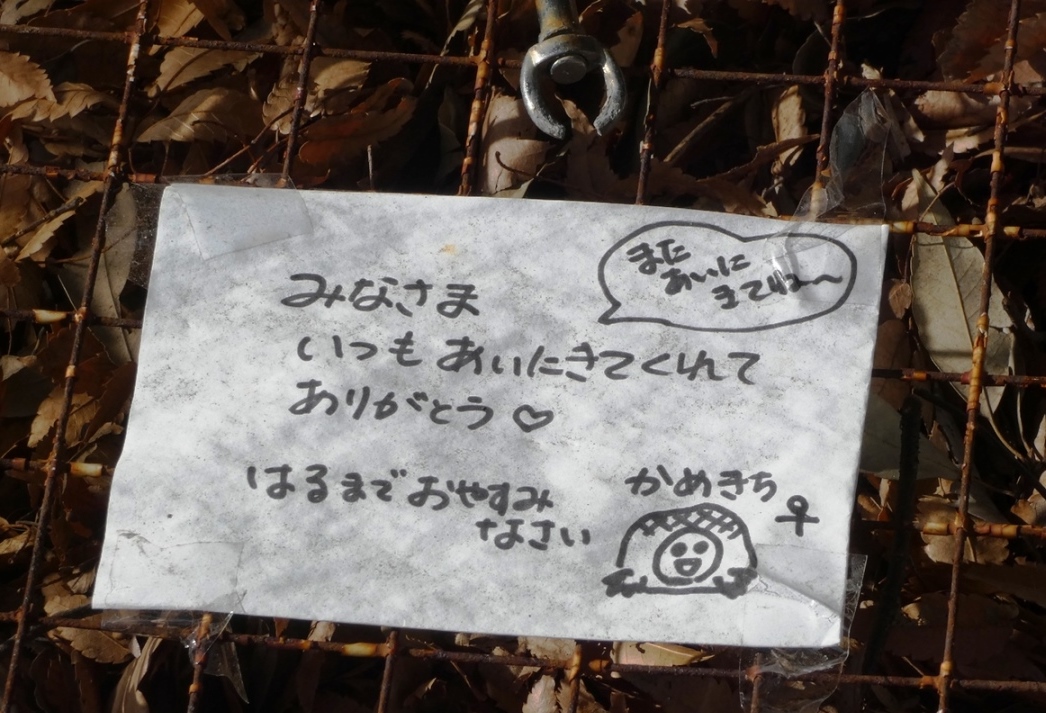 みなさま
いつも あいにきてくれて
ありがとう♡
はるまで おやすみ
なさい
また
あいに
きてね〜
かめきち
♀